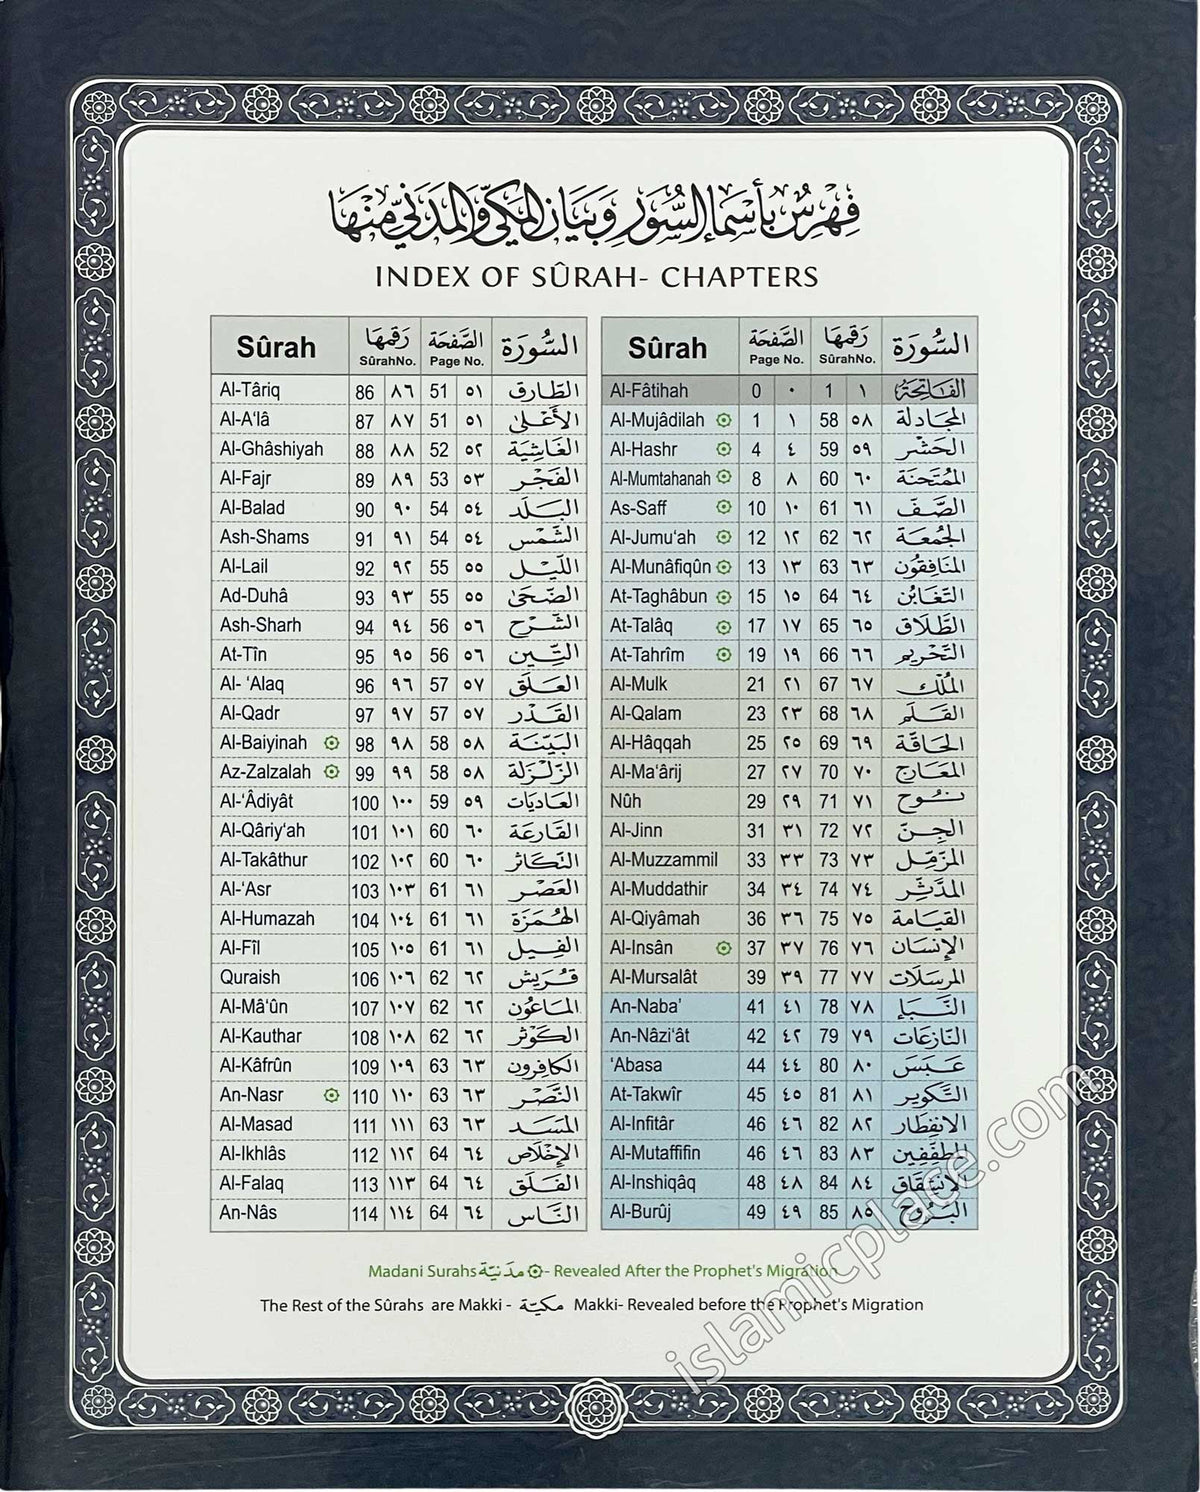 فِهْرِسُ بِأَسْمَاءِ السُّوَرِ وَبَيَانِ المَكِّيِّ وَالمَدَنِيِّ مِنْهَا
INDEX OF SÛRAH- CHAPTERS
Sûrah رَقمهَا SûrahNo. الصَّفحَة Page No. السُّورَة
Al-Târiq 86 ٨٦ 51 ٥١ الطَّارِق
Al-A‘lâ 87 ٨٧ 51 ٥١ الأَعْلَىٰ
Al-Ghâshiyah 88 ٨٨ 52 ٥٢ الغَاشِيَة
Al-Fajr 89 ٨٩ 53 ٥٣ الفَجْر
Al-Balad 90 ٩٠ 54 ٥٤ البَلَد
Ash-Shams 91 ٩١ 54 ٥٤ الشَّمْس
Al-Lail 92 ٩٢ 55 ٥٥ اللَّيْل
Ad-Duhâ 93 ٩٣ 55 ٥٥ الضُّحَىٰ
Ash-Sharh 94 ٩٤ 56 ٥٦ الشَّرْح
At-Tîn 95 ٩٥ 56 ٥٦ التِّين
Al- ‘Alaq 96 ٩٦ 57 ٥٧ العَلَق
Al-Qadr 97 ٩٧ 57 ٥٧ القَدْر
Al-Baiyinah 98 ٩٨ 58 ٥٨ البَيِّنَة
Az-Zalzalah 99 ٩٩ 58 ٥٨ الزَّلْزَلَة
Al-‘Âdiyât 100 ١٠٠ 59 ٥٩ العَادِيَات
Al-Qâriy‘ah 101 ١٠١ 60 ٦٠ القَارِعَة
Al-Takâthur 102 ١٠٢ 60 ٦٠ التَّكَاثُر
Al-‘Asr 103 ١٠٣ 61 ٦١ العَصْر
Al-Humazah 104 ١٠٤ 61 ٦١ الهُمَزَة
Al-Fîl 105 ١٠٥ 61 ٦١ الفِيل
Quraish 106 ١٠٦ 62 ٦٢ قُرَيْش
Al-Mâ‘ûn 107 ١٠٧ 62 ٦٢ المَاعُون
Al-Kauthar 108 ١٠٨ 62 ٦٢ الكَوْثَر
Al-Kâfrûn 109 ١٠٩ 63 ٦٣ الكَافِرُون
An-Nasr 110 ١١٠ 63 ٦٣ النَّصْر
Al-Masad 111 ١١١ 63 ٦٣ المَسَد
Al-Ikhlâs 112 ١١٢ 64 ٦٤ الإِخْلَاص
Al-Falaq 113 ١١٣ 64 ٦٤ الفَلَق
An-Nâs 114 ١١٤ 64 ٦٤ النَّاس
Sûrah الصَّفحَة Page No. رَقمهَا SûrahNo. السُّورَة
Al-Fâtihah 0 ٠ 1 ١ الفَاتِحَة
Al-Mujâdilah 1 ١ 58 ٥٨ المُجَادلة
Al-Hashr 4 ٤ 59 ٥٩ الحَشْر
Al-Mumtahanah 8 ٨ 60 ٦٠ المُمْتَحنَة
As-Saff 10 ١٠ 61 ٦١ الصَّفّ
Al-Jumu‘ah 12 ١٢ 62 ٦٢ الجُمُعَة
Al-Munâfiqûn 13 ١٣ 63 ٦٣ المُنَافِقُون
At-Taghâbun 15 ١٥ 64 ٦٤ التَّغَابُن
At-Talâq 17 ١٧ 65 ٦٥ الطَّلَاق
At-Tahrîm 19 ١٩ 66 ٦٦ التَّحْرِيم
Al-Mulk 21 ٢١ 67 ٦٧ المُلْك
Al-Qalam 23 ٢٣ 68 ٦٨ القَلَم
Al-Hâqqah 25 ٢٥ 69 ٦٩ الحَاقَّة
Al-Ma‘ârij 27 ٢٧ 70 ٧٠ المَعَارِج
Nûh 29 ٢٩ 71 ٧١ نُوح
Al-Jinn 31 ٣١ 72 ٧٢ الجِنّ
Al-Muzzammil 33 ٣٣ 73 ٧٣ المُزَّمِّل
Al-Muddathir 34 ٣٤ 74 ٧٤ المُدَّثِّر
Al-Qiyâmah 36 ٣٦ 75 ٧٥ القِيَامَة
Al-Insân 37 ٣٧ 76 ٧٦ الإِنْسَان
Al-Mursalât 39 ٣٩ 77 ٧٧ المُرسَلَات
An-Naba’ 41 ٤١ 78 ٧٨ النَّبَإ
An-Nâzi‘ât 42 ٤٢ 79 ٧٩ النَّازِعَات
‘Abasa 44 ٤٤ 80 ٨٠ عَبَسَ
At-Takwîr 45 ٤٥ 81 ٨١ التَّكوِير
Al-Infitâr 46 ٤٦ 82 ٨٢ الانفِطَار
Al-Mutaffifin 46 ٤٦ 83 ٨٣ المُطفِّفِين
Al-Inshiqâq 48 ٤٨ 84 ٨٤ الانشِقَاق
Al-Burûj 49 ٤٩ 85 ٨٥ البُرُوج
Madani Surahs مدَنيَّة - Revealed After the Prophet's Migration
The Rest of the Sûrahs are Makki - مكيَّة Makki- Revealed before the Prophet's Migration
islamicplace.com